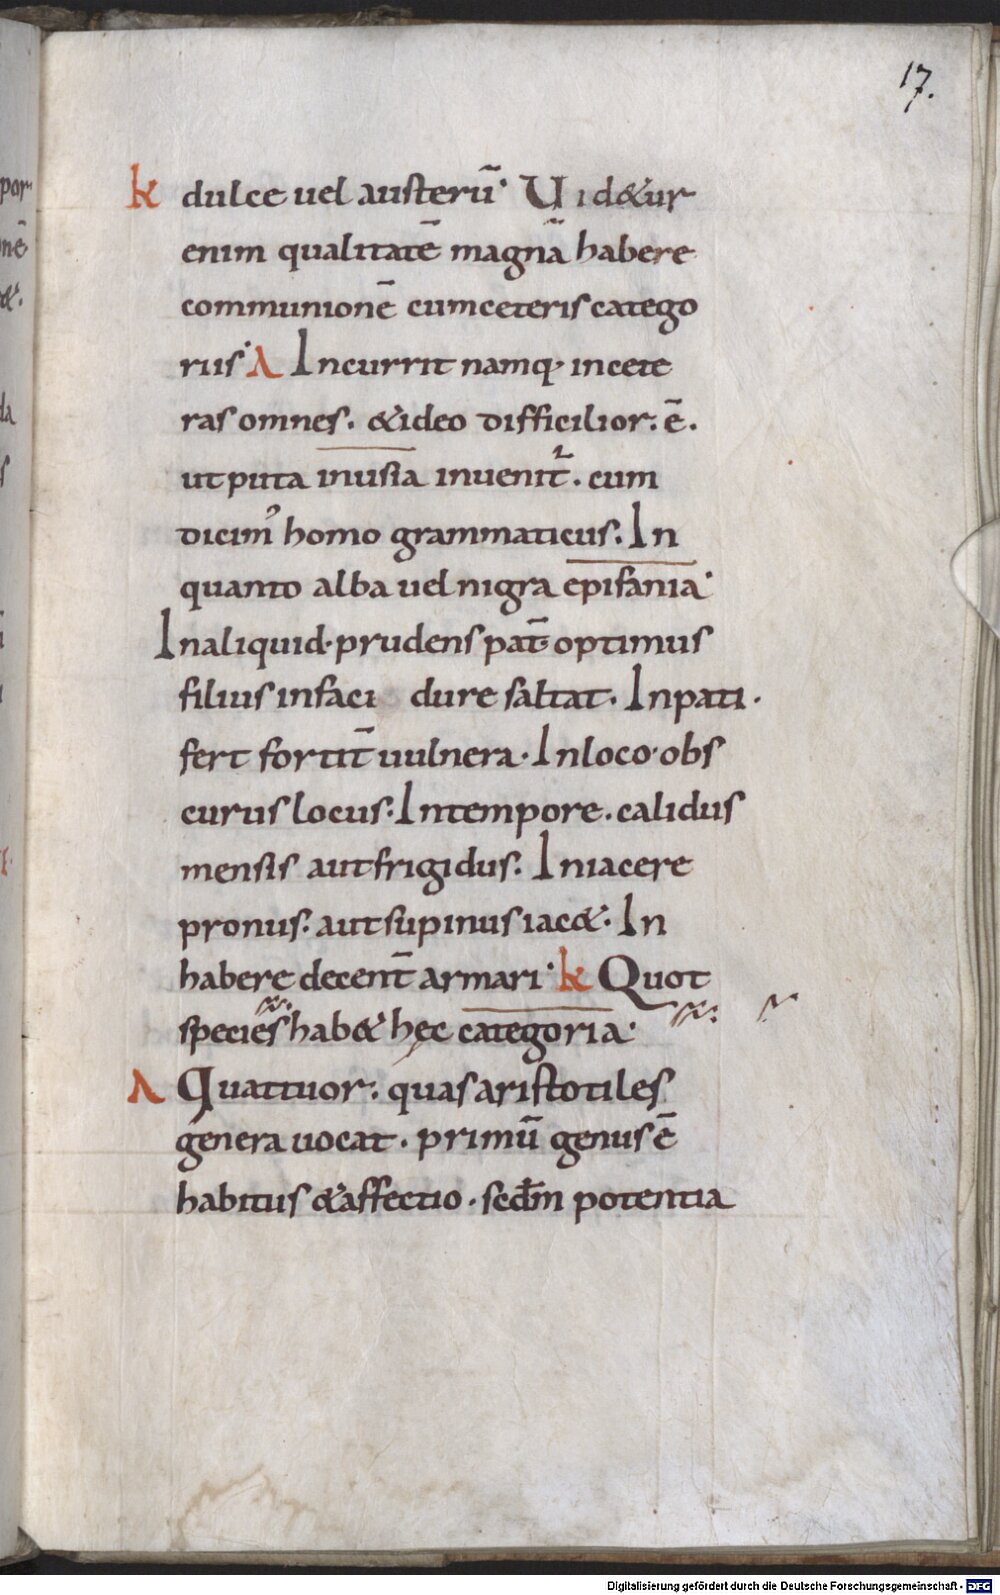 17.
k dulce uel austerū· Uid&ur
enim qualitatē magnā habere
communionē cumceteris catego
riis· A Incurrit namq· incete
ras omnes. &ideo difficilior. ē.
ut puta inusia inuenit̄. cum
dicim᾽ homo grammaticus. In
quanto alba uel nigra epifania·
Inaliquid·prudens pat̄ optimus
filius infaci dure saltat. Inpati.
fert fortit̄ uulnera·Inloco·obs
curus locus·Intempore.calidus
mensis autfrigidus. Iniacere
pronus. autsupinus iac&. In
habere decent̄ armari· k Quot
species hab& hęc categoria·
A Quattuor. quas aristotiles
genera uocat. primū genus ē
habitus &affectio. secd̄m potentia
Digitalisierung gefördert durch die Deutsche Forschungsgemeinschaft - DFG